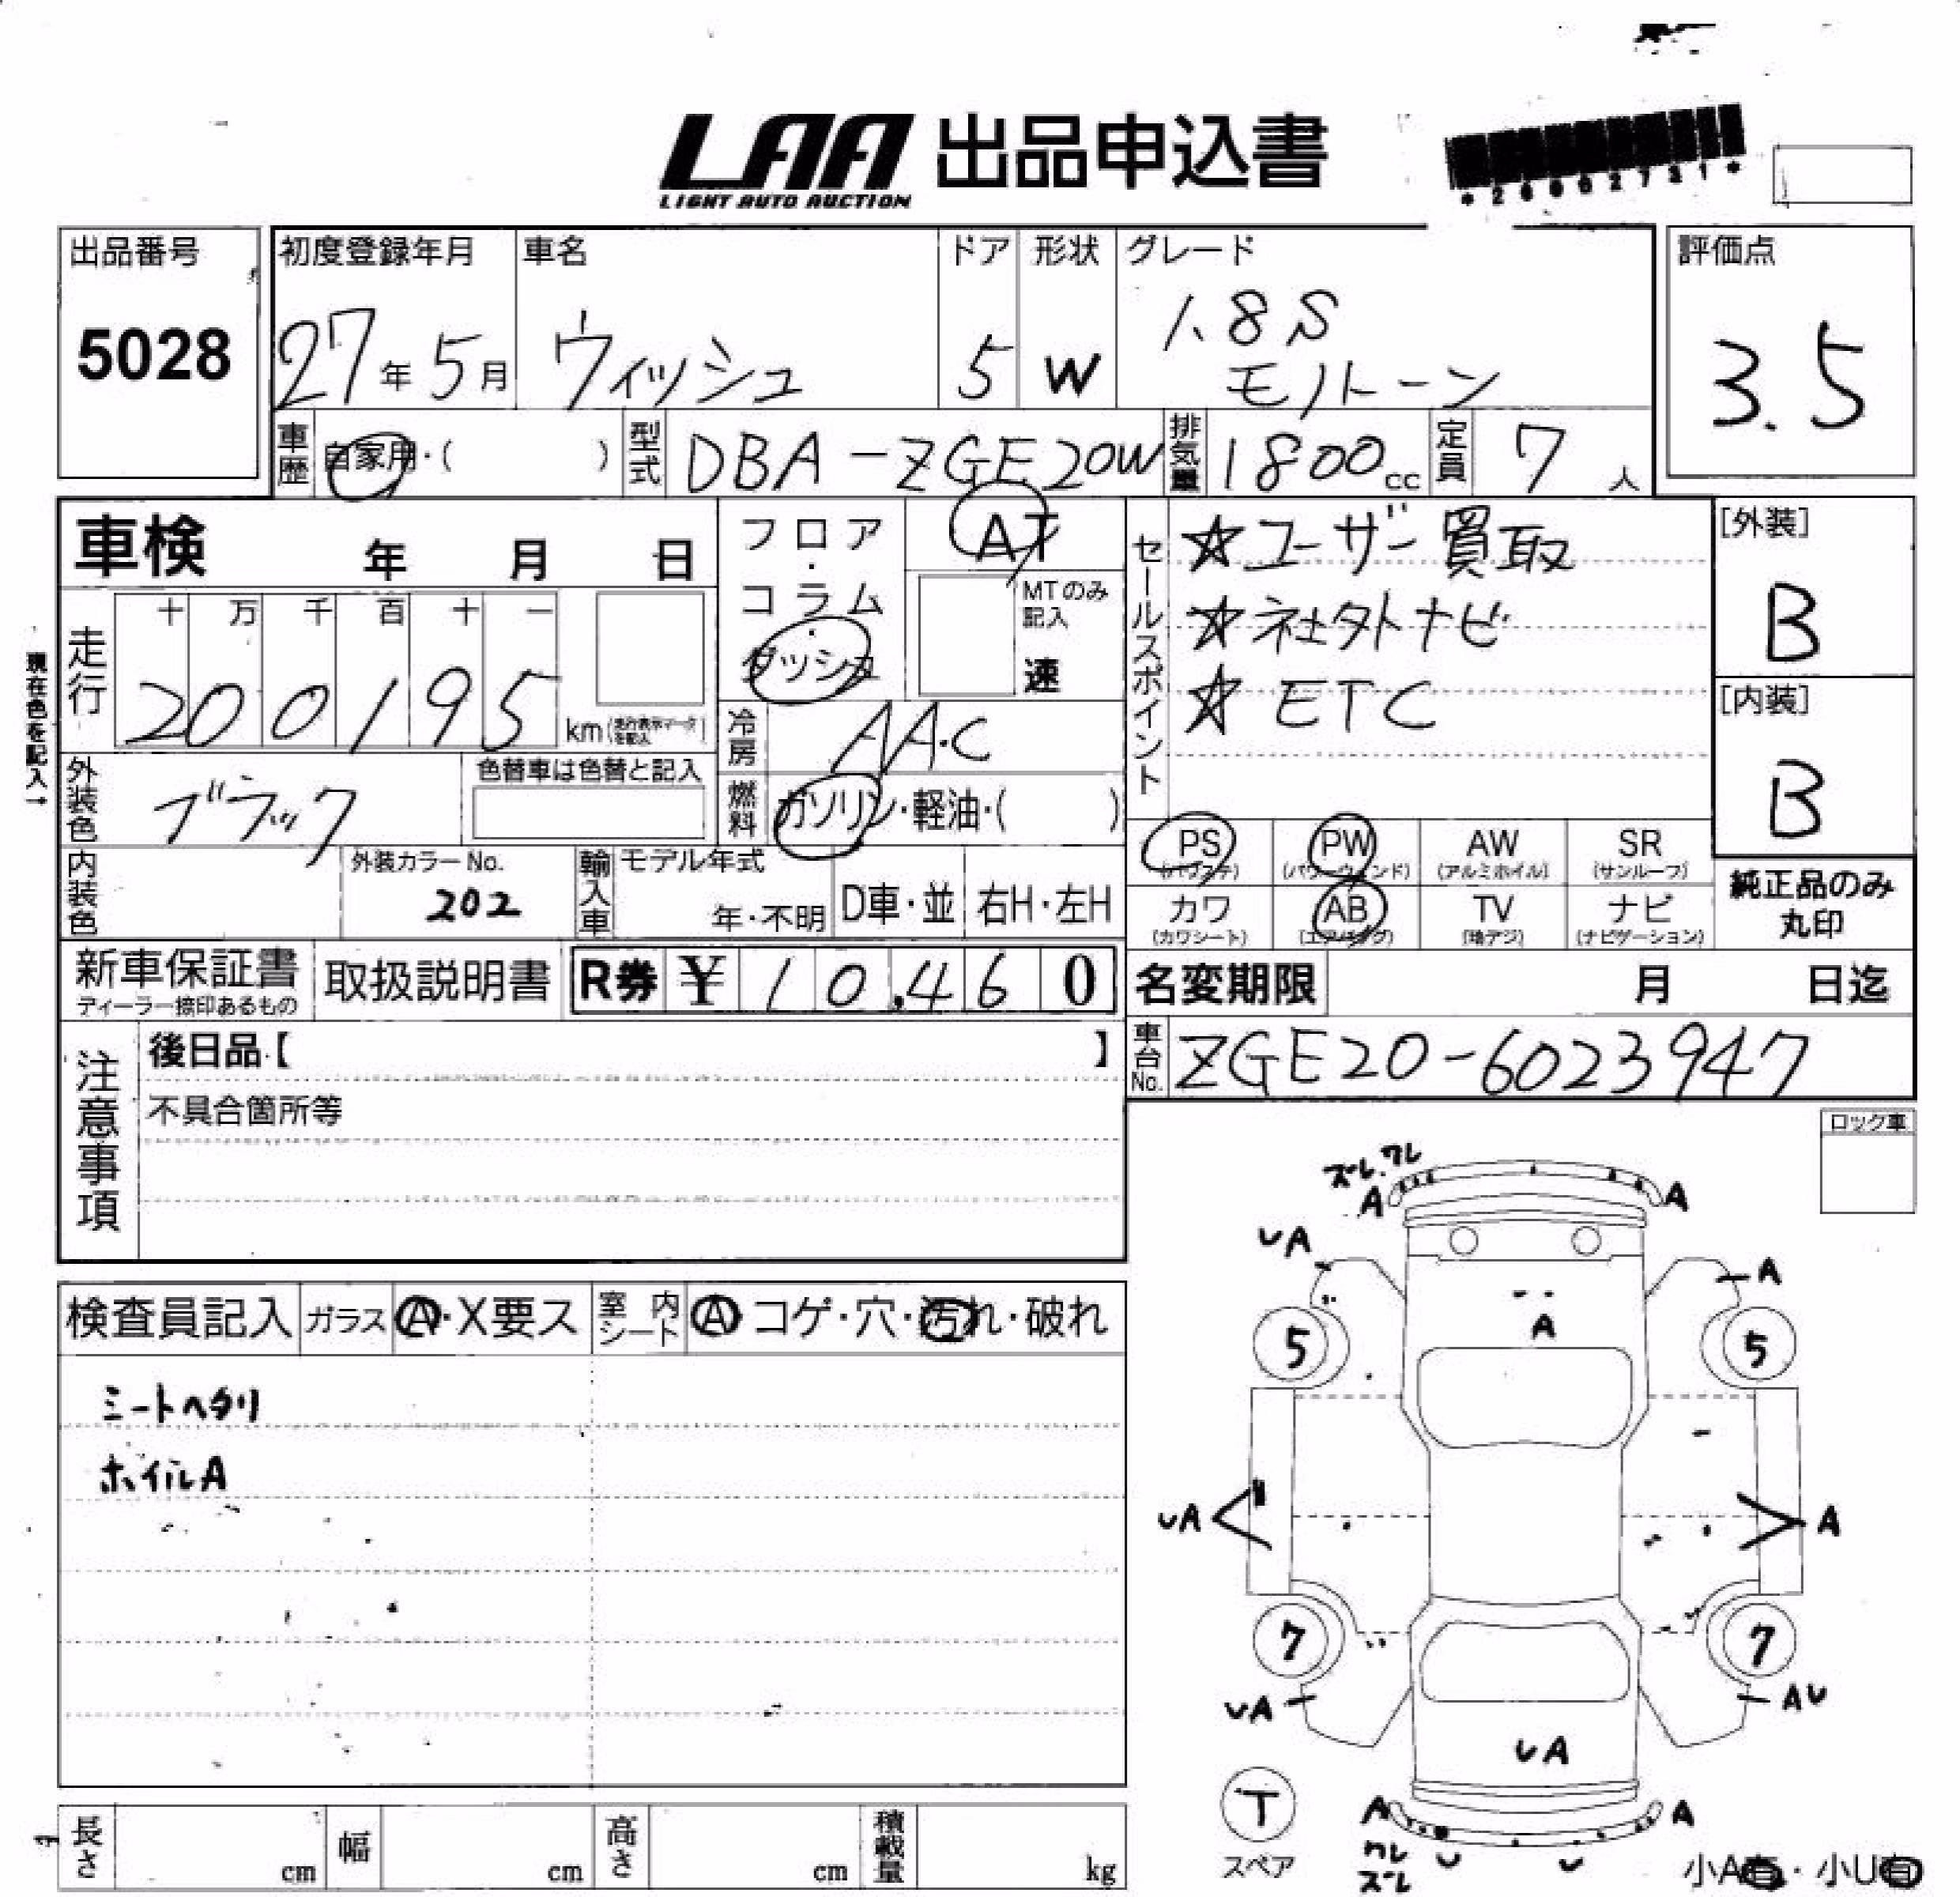 LAA 出品申込書
LIGHT AUTO AUCTION
出品番号
5028
初度登録年月
27年5月
車名
ウィッシュ
ドア
5
形状
W
グレード
1.8S
モノトーン
評価点
3.5
車歴
自家用・( )
型式
DBA-ZGE20W
排気量
1800cc
定員
7人
車検 年 月 日
現在色を記入→
走行
十 万 千 百 十 一
200195
km
フロア・コラム・ダッシュ
AT
MTのみ記入
速
冷房
AAC
燃料
ガソリン・軽油・( )
外装色
ブラック
色替車は色替と記入
内装色
外装カラーNo.
202
輸入車
モデル年式
年・不明
D車・並
右H・左H
セールスポイント
☆ユーザー買取
☆社外ナビ
☆ETC
[外装]
B
[内装]
B
PS
(パワステ)
PW
(パワーウィンド)
AW
(アルミホイル)
SR
(サンルーフ)
カワ
(カワシート)
AB
(エアバッグ)
TV
(地デジ)
ナビ
(ナビゲーション)
純正品のみ
丸印
新車保証書
ディーラー捺印あるもの
取扱説明書
R券 ¥ 10,460
名変期限 月 日迄
車台No.
ZGE20-6023947
注意事項
後日品【 】
不具合箇所等
ロック車
検査員記入
ガラス
A・X要ス
室内シート
A コゲ・穴・汚れ・破れ
シートヘタリ
ホイルA
ズレ.ワレ
A
A
UA
A
5
A
5
UA
A
7
7
UA
AU
UA
T
スペア
A
A
ワレ
ズレ
U
U
小A有・小U有
長さ cm
幅 cm
高さ cm
積載量 kg